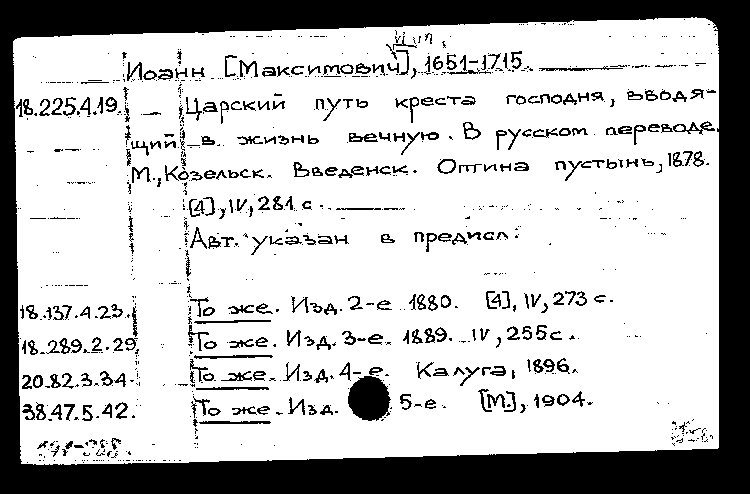 Иоанн [Максимович], 1651-1715.
18.225.4.19. — Царский путь креста господня, вводя-
щий в жизнь вечную. В русском переводе.
М., Козельск. Введенск. Оптина пустынь, 1878.
[4], IV, 281 с.
Авт. указан в предисл.
18.137.4.23. То же. Изд. 2-е 1880. [4], IV, 273 с.
18.289.2.29 То же. Изд. 3-е. 1889. IV, 255 с.
20.82.3.34. То же. Изд. 4-е. Калуга, 1896.
38.47.5.42. То же. Изд. 5-е. [М.], 1904.